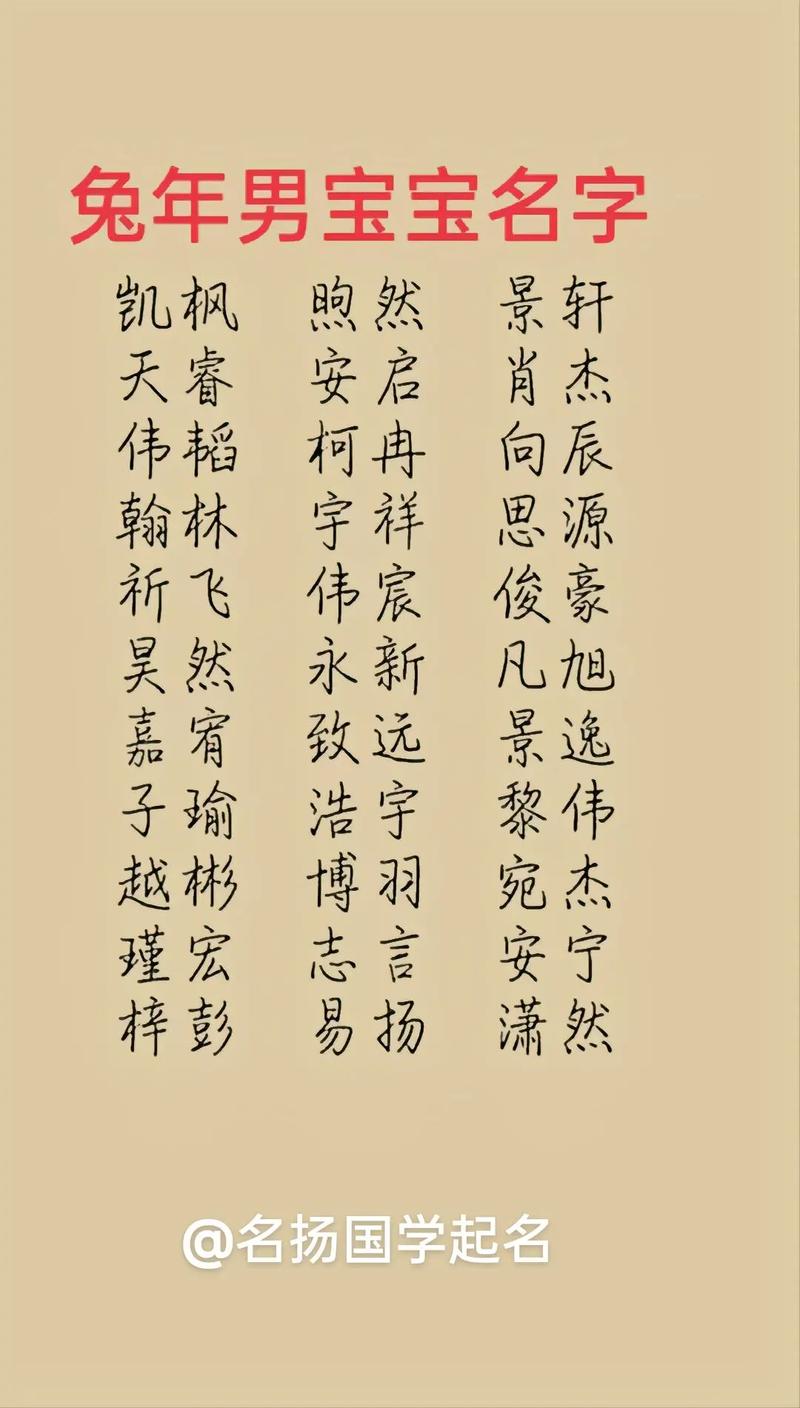 兔年男宝宝名字
凯枫 煦然 景轩
天睿 安启 肖杰
伟韬 柯冉 向辰
翰林 宇祥 思源
祈飞 伟宸 俊豪
昊然 永新 凡旭
嘉宥 致远 景逸
子瑜 浩宇 黎伟
越彬 博羽 宛杰
瑾宏 志言 安宁
梓彭 易扬 潇然
@名扬国学起名